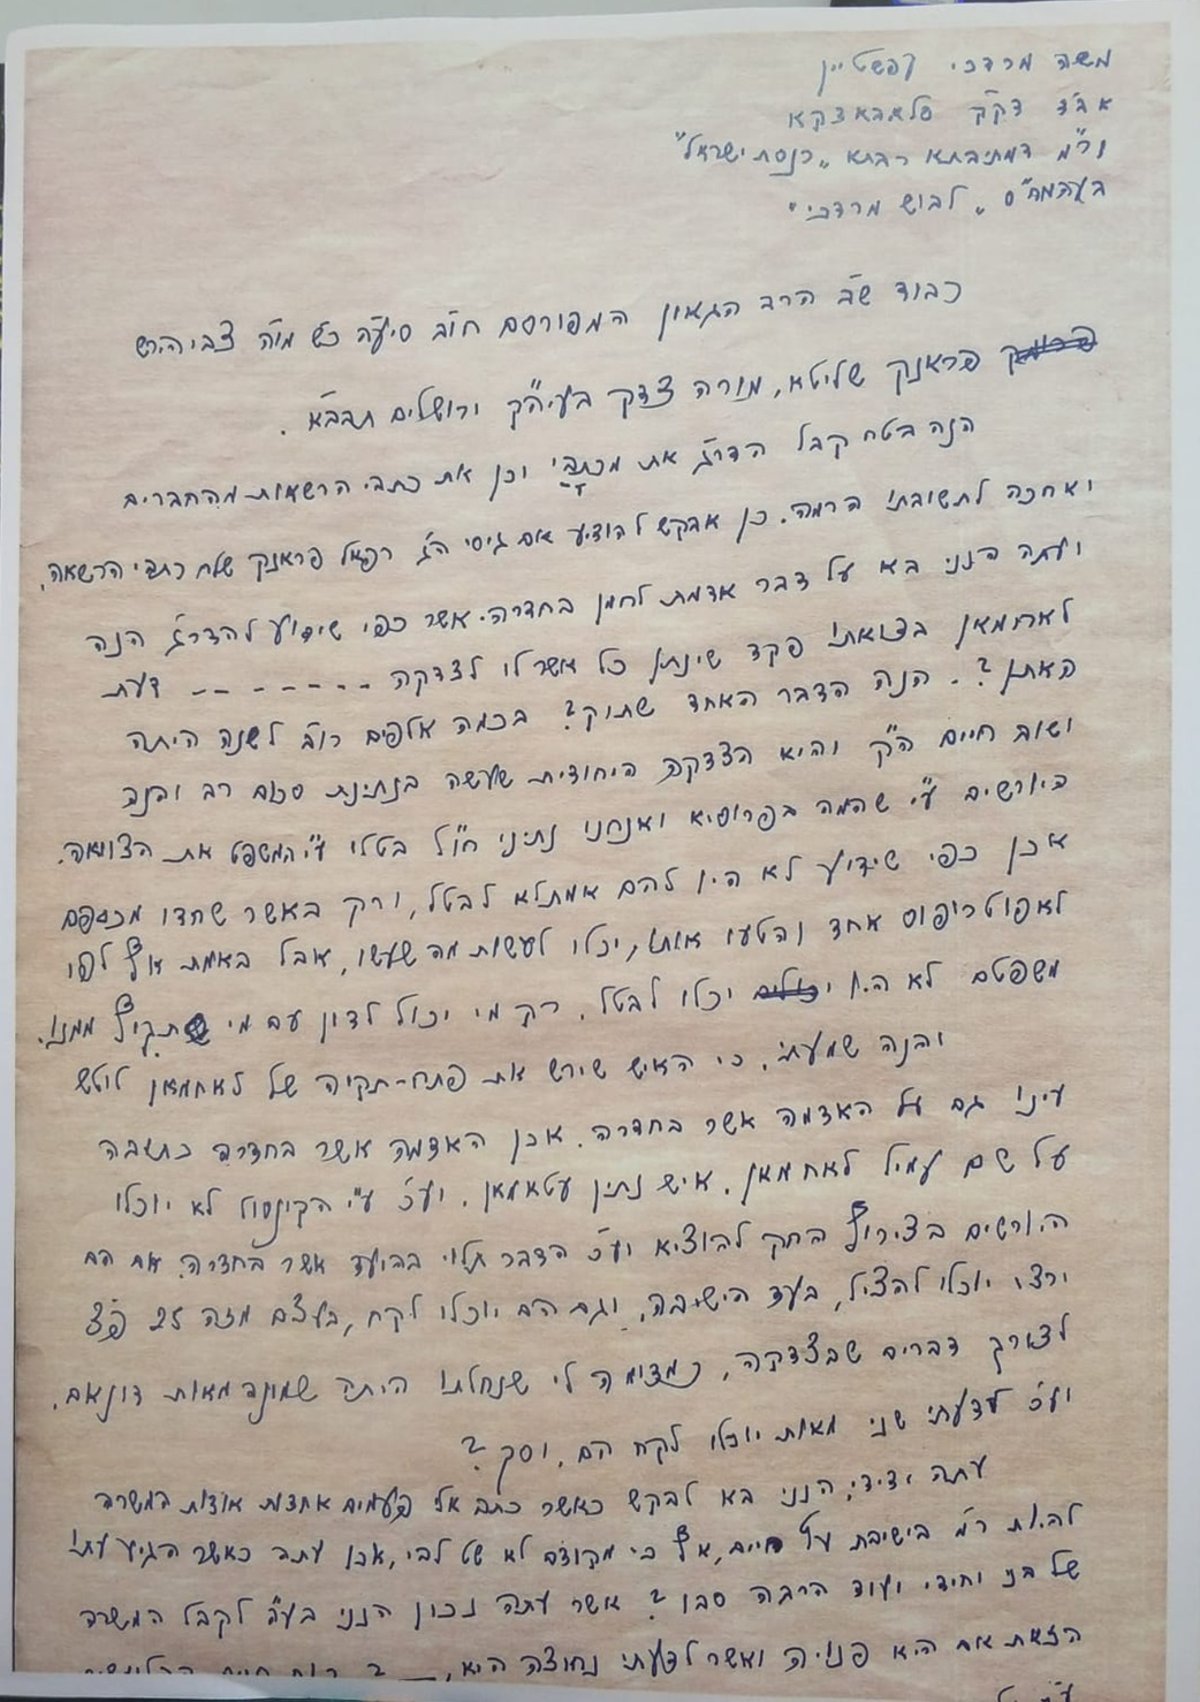 משה מרדכי עפשטיין
אב"ד דק"ק סלאבאצקא
ור"מ דמתיבתא רבתא "כנסת ישראל"
בעהמח"ס "לבוש מרדכי"
כבוד ש"ב הרב הגאון המפורסם חו"ב סיע"ה כש מו"ה צבי הירש
פראנק שליטא, מורה צדק בעיה"ק ירושלים תבב"א.
הנה בטח קבל הדר"ג את מכתבי וכן את כתבי הרשאות מהחברים
ואחכה לתשובתו הרמה. כן אבקש להודיע אם גיסי הג' רפאל פראנק שלח כתבי הרשאה.
ועתה הנני בא על דבר אדמת לחמן בחדרה. אשר כפי שידוע להדר"ג הנה
לאחמאן בצואתו פקד שינתן כל אשר לו לצדקה -------- דעת
האתן? . הנה הדבר האחד שתוק? בכמה אלפים רו"כ לשנה היתה
ישוב חיים ה"ק והיא הצדקה היחודית שעשה בנתינת סכום רב והנה
היורשים ע"י שהמה בפרוסיא ואנחנו נתיני חו"ל בטלו ע"י המשפט את הצוואה.
אכן כפי שידוע לא היו להם אמתלא לבטל, ורק באשר שחדו מכספם
לאפוטריפוס אחד והטעו אותו, יכלו לעשות מה שעשו, אבל באמת אף לפי
משפטם לא היו יכלו לבטל. רק מי יכול לדון עם מי שתקיף ממנו.
והנה שמעתי, כי האיש שירש את פתח-תקוה של לאחמאן לוטש
עינו גם על האדמה אשר בחדרה. אכן האדמה אשר בחדרה כתובה
על שם עמיל לאחמאן. איש נתין עטאמאן. וע"כ ע"י הקינסול לא יוכלו
היורשים בצירוף החק להוציא וע"כ הדבר תלוי בהיעד אשר בחדרה. אם הם
ירצו יוכלו להציל, בעד הישיבה. וגם הם יוכלו לקח, בעצם מזה 25 פ"צ
לצורך דברים שבצדקה, כמדומה לי שנחלתו היתה שמונה מאות דונאם.
וע"כ לדעתי שני מאות יוכלו לקח הם, וסק?
עתה ידידי, הנני בא לבקש כאשר כתב אלי פעמים אחדות אודות המשרה
להיות ר"מ בישיבת עץ חיים, אף כי מקודם לא שט לבי, אכן עתה כאשר הגיע עתו
של בני יחידי ועוד הרבה סבו? אשר עתה נכון הנני בעה"י לקבל המשרה
הזאת אם היא פנויה ואשר לדעתי נחוצה היא,